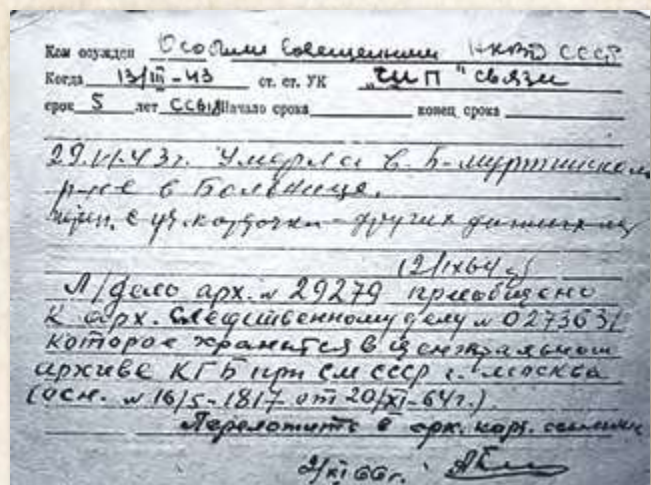 Кем осужден Особым Совещанием НКВД СССР
Когда 13/III-43 ст. ст. УК "СИП" связи
срок 5 лет ссыл Начало срока конец срока
29.VI.43г. Умерла в Б-муртинском
р-не в Больнице.
уч. карточки других данных нет
12/IX64г
Л/дело арх. № 29279 приобщено
к арх. следственному делу №
которое хранится в центральном
архиве КГБ при СМ СССР г. Москва
(осн. № 16/5-1817 от 20/XI-64г.).
Переложить в арх. карт. ссыльных
2/XI 66г.